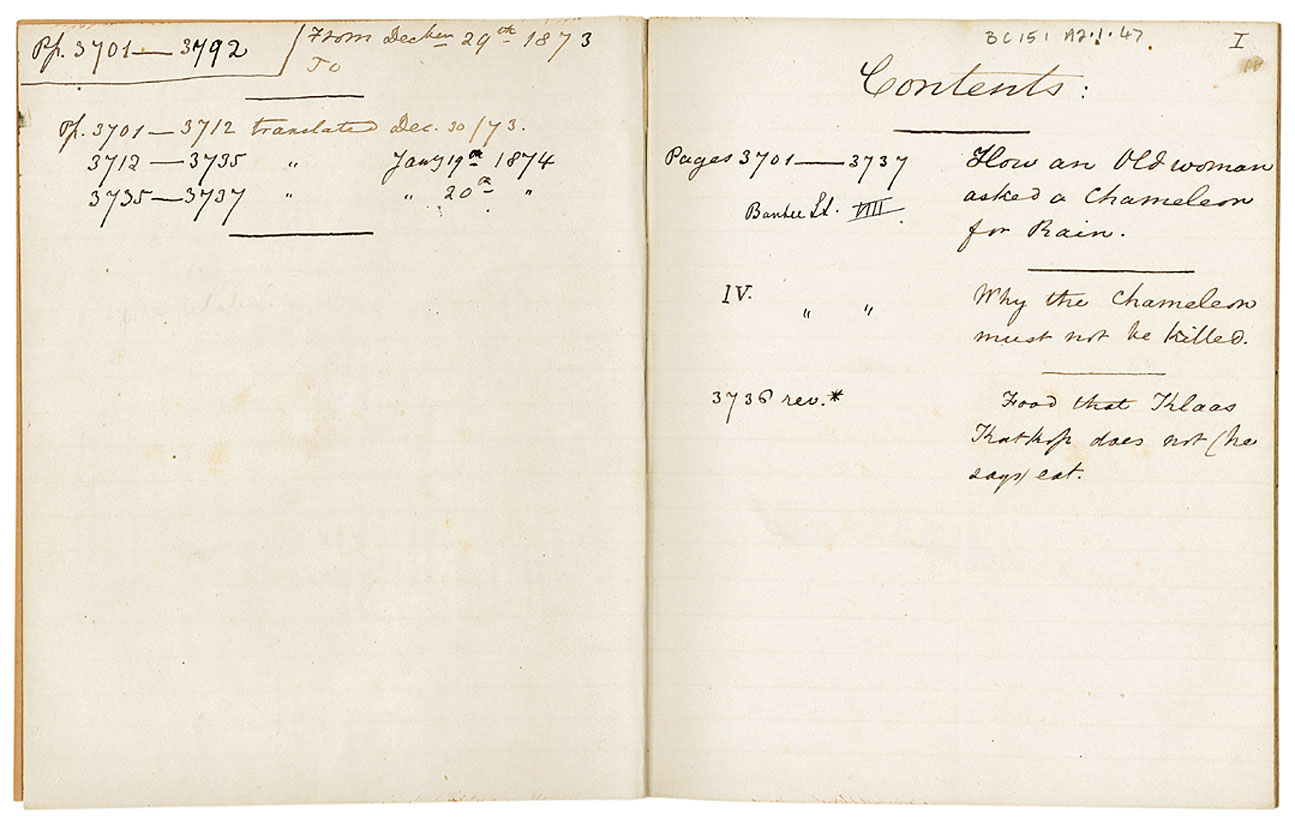 Pp. 3701 — 3792
From Decber 29th 1873
To
Pp. 3701 — 3712 translated Dec. 30/73.
3712 — 3735 " Jany 19th 1874
3735 — 3737 " " 20th "
BC 151 A2.1.47
I
Contents:
Pages 3701 — 3737 How an Old woman
asked a Chameleon
for Rain.
VIII
IV. " " Why the Chameleon
must not be killed.
3736 rev.* Food that Klaas
Katkop does not (he
says) eat.